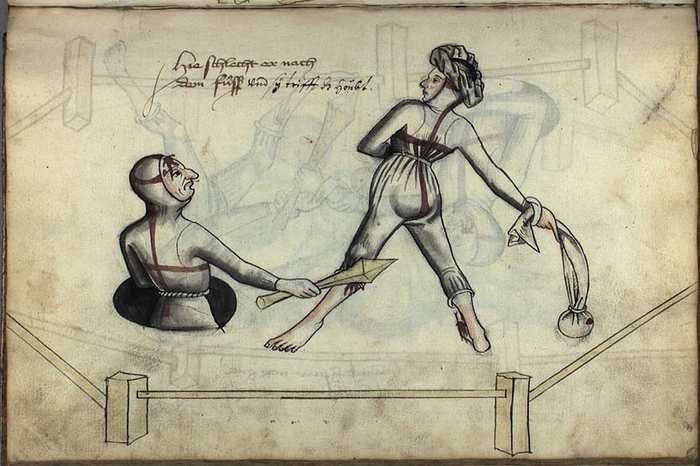 Hie schlecht er nach
dem fuͦss und sy trifft dz houbt.